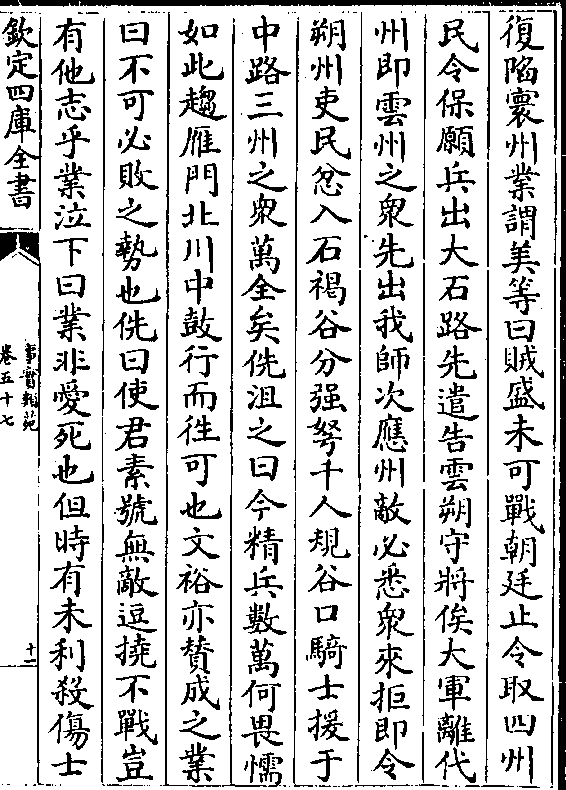 復陷寰州業謂美等曰賊盛未可戰朝廷止令取四州
民令保願兵出大石路先遣告雲朔守將俟大軍離代
州即雲州之衆先出我師次應州敵必悉衆來拒即令
朔州吏民忿入石褐谷分强弩千人規谷口騎士援于
中路三州之衆萬全矣侁沮之曰今精兵數萬何畏懦
如此趨雁門北川中鼓行而徃可也文裕亦賛成之業
曰不可必敗之勢也侁曰使君素號無敵逗撓不戰豈
有他志乎業泣下曰業非愛死也但時有未利殺傷士
欽定四庫全書
事實類苑
卷五十七
十二